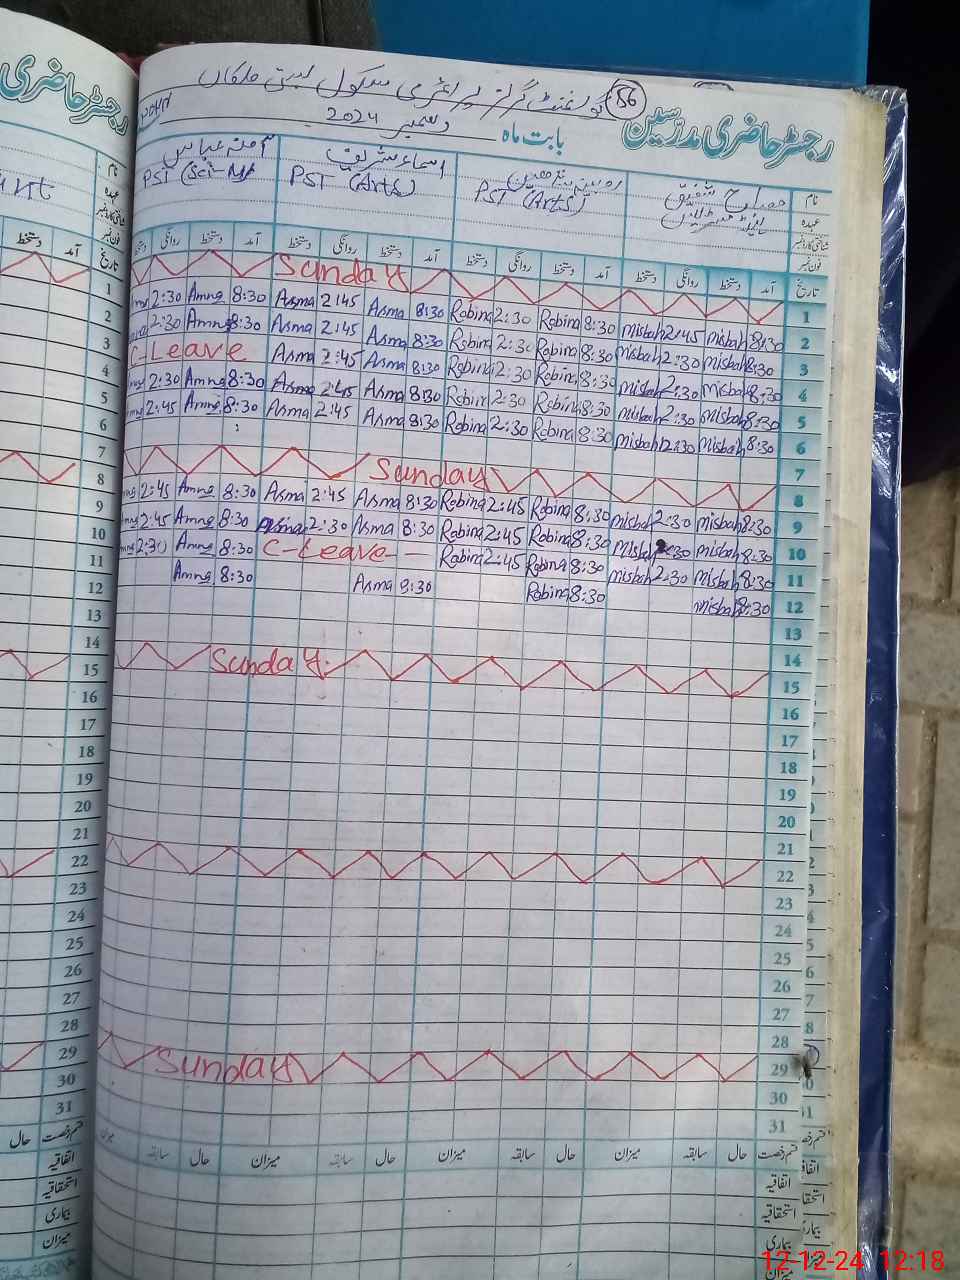 رجسٹر حاضری
رجسٹر حاضری مدرسین
86 گورنمنٹ گرلز پرائمری سکول
بابت ماہ دسمبر 2024
نام مصباح شفیق روبینہ اسماء شریف آمنہ عباس
عہدہ PST (Arts) PST (Arts) PST (Sci-M
شناختی کارڈ نمبر
فون نمبر
تاریخ آمد دستخط روانگی دستخط آمد دستخط روانگی دستخط آمد دستخط روانگی دستخط آمد دستخط روانگی
Sunday 1
2:30 Amna 8:30 Asma 2:45 Asma 8:30 Robina 2:30 Robina 8:30 misbah 2:45 misbah 8:30 2
2:30 Amna 8:30 Asma 2:45 Asma 8:30 Robina 2:30 Robina 8:30 misbah 2:30 misbah 8:30 3
C-Leave Asma 2:45 Asma 8:30 Robina 2:30 Robina 8:30 misbah 2:30 misbah 8:30 4
2:30 Amna 8:30 Asma 2:45 Asma 8:30 Robina 2:30 Robina 8:30 misbah 2:30 misbah 8:30 5
2:45 Amna 8:30 Asma 2:45 Asma 8:30 Robina 2:30 Robina 8:30 misbah 2:30 misbah 8:30 6
7
Sunday 8
2:45 Amna 8:30 Asma 2:45 Asma 8:30 Robina 2:45 Robina 8:30 misbah 2:30 misbah 8:30 9
2:45 Amna 8:30 Asma 2:30 Asma 8:30 Robina 2:45 Robina 8:30 misbah 2:30 misbah 8:30 10
2:30 Amna 8:30 C-Leave Robina 2:45 Robina 8:30 misbah 2:30 misbah 8:30 11
Amna 8:30 Asma 8:30 Robina 8:30 misbah 8:30 12
13
14
Sunday 15
16
17
18
19
20
21
22
23
24
25
26
27
28
Sunday 29
30
31
قسم رخصت حال سابقہ میزان حال سابقہ میزان حال سابقہ میزان حال سابقہ
اتفاقیہ
استحقاقیہ
بیماری
میزان
12-12-24 12:18